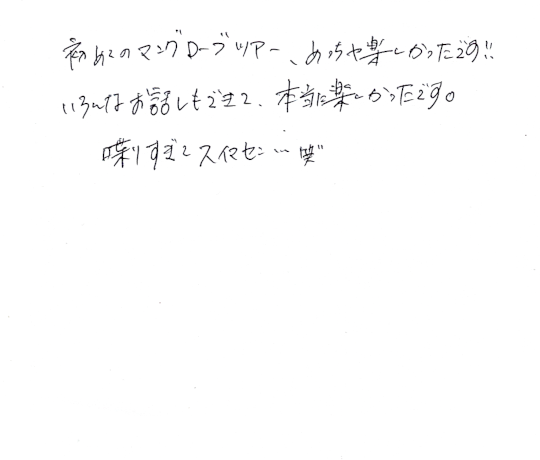 初めてのマングローブツアー、めっちゃ楽しかったです!!
いろんなお話しもできて、本当に楽しかったです。
喋りすぎてスイマセン…笑